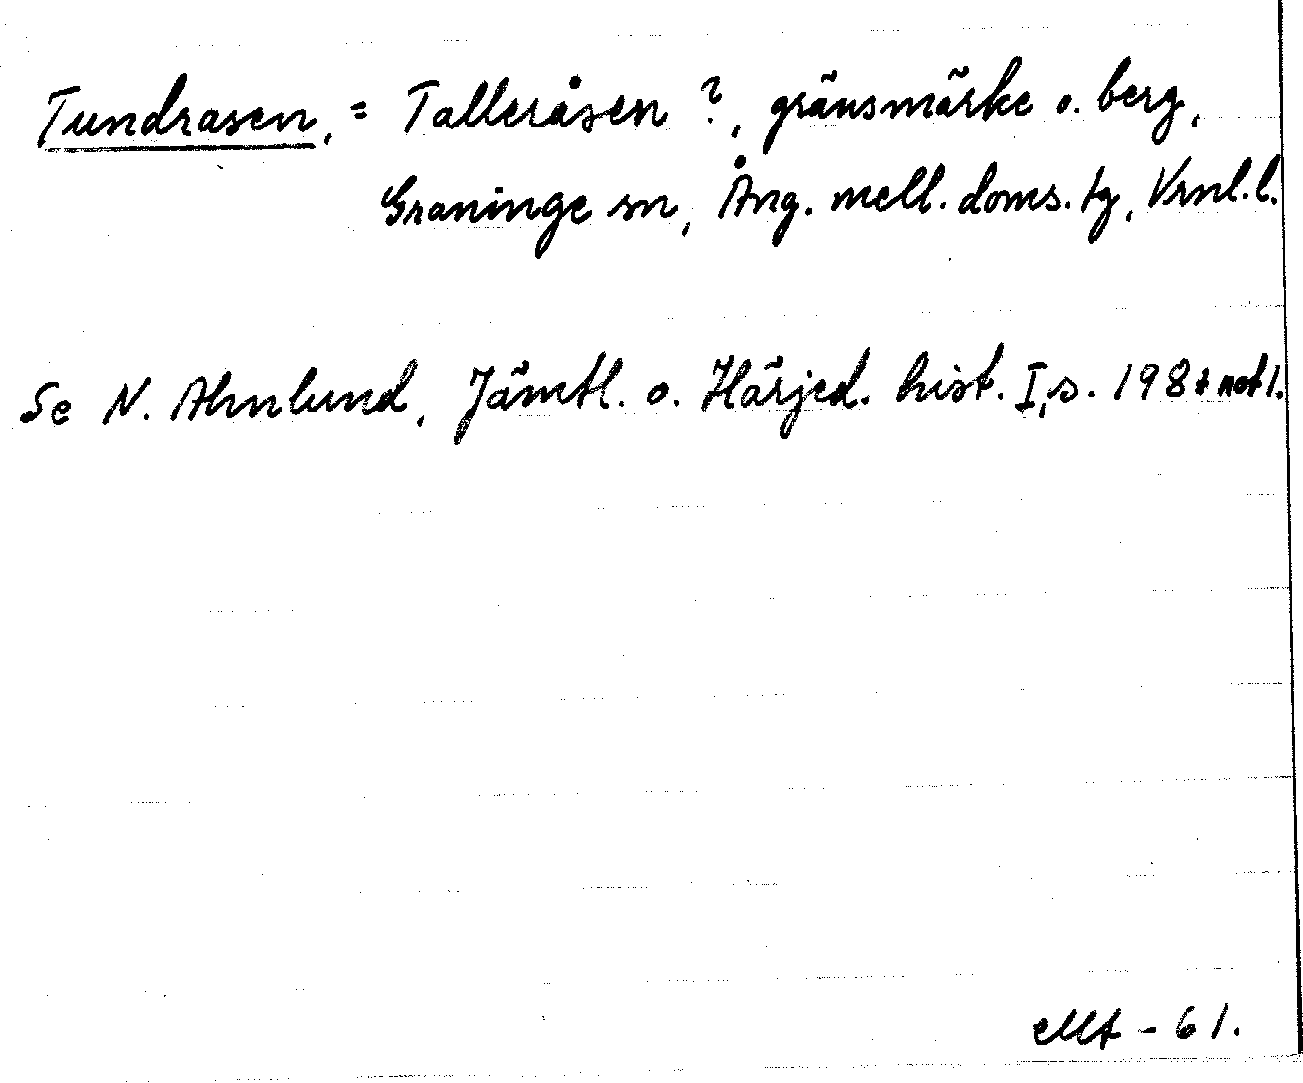 Tundrasen, = Talleråsen ?, gränsmärke o. berg,
Graninge sn, Ång. mell. doms. tg, Vrnl. l.
Se N. Ahnlund, Jämtl. o. Härjed. hist. I, s. 198 + not 1.
- 61.